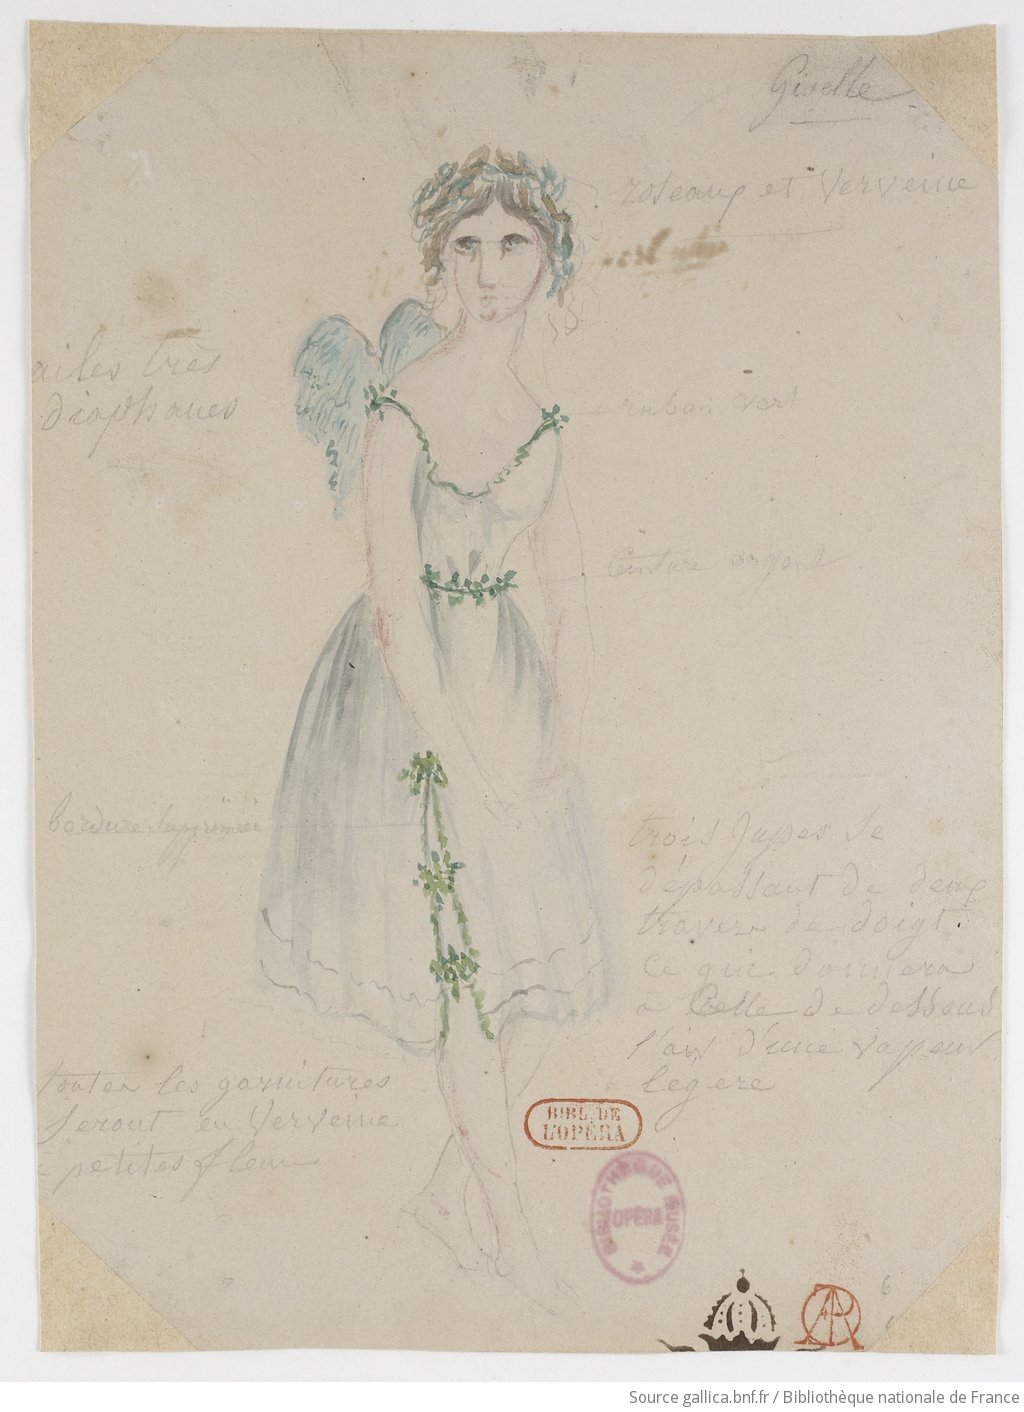 Giselle
roseaux et Verveine
ailes très
Diaphanes
ruban vert
Ceinture argent
bordure
trois Jupes se
dépassant de deux
travers de doigt.
ce qui donnera
à Celle de dessous
l'air d'une vapeur
légere
toutes les garnitures
Seront en Verveine
à petites fleurs
BIBL. DE
L'OPÉRA
BIBLIOTHÈQUE MUSÉE
OPÉRA
6
Source gallica.bnf.fr / Bibliothèque nationale de France